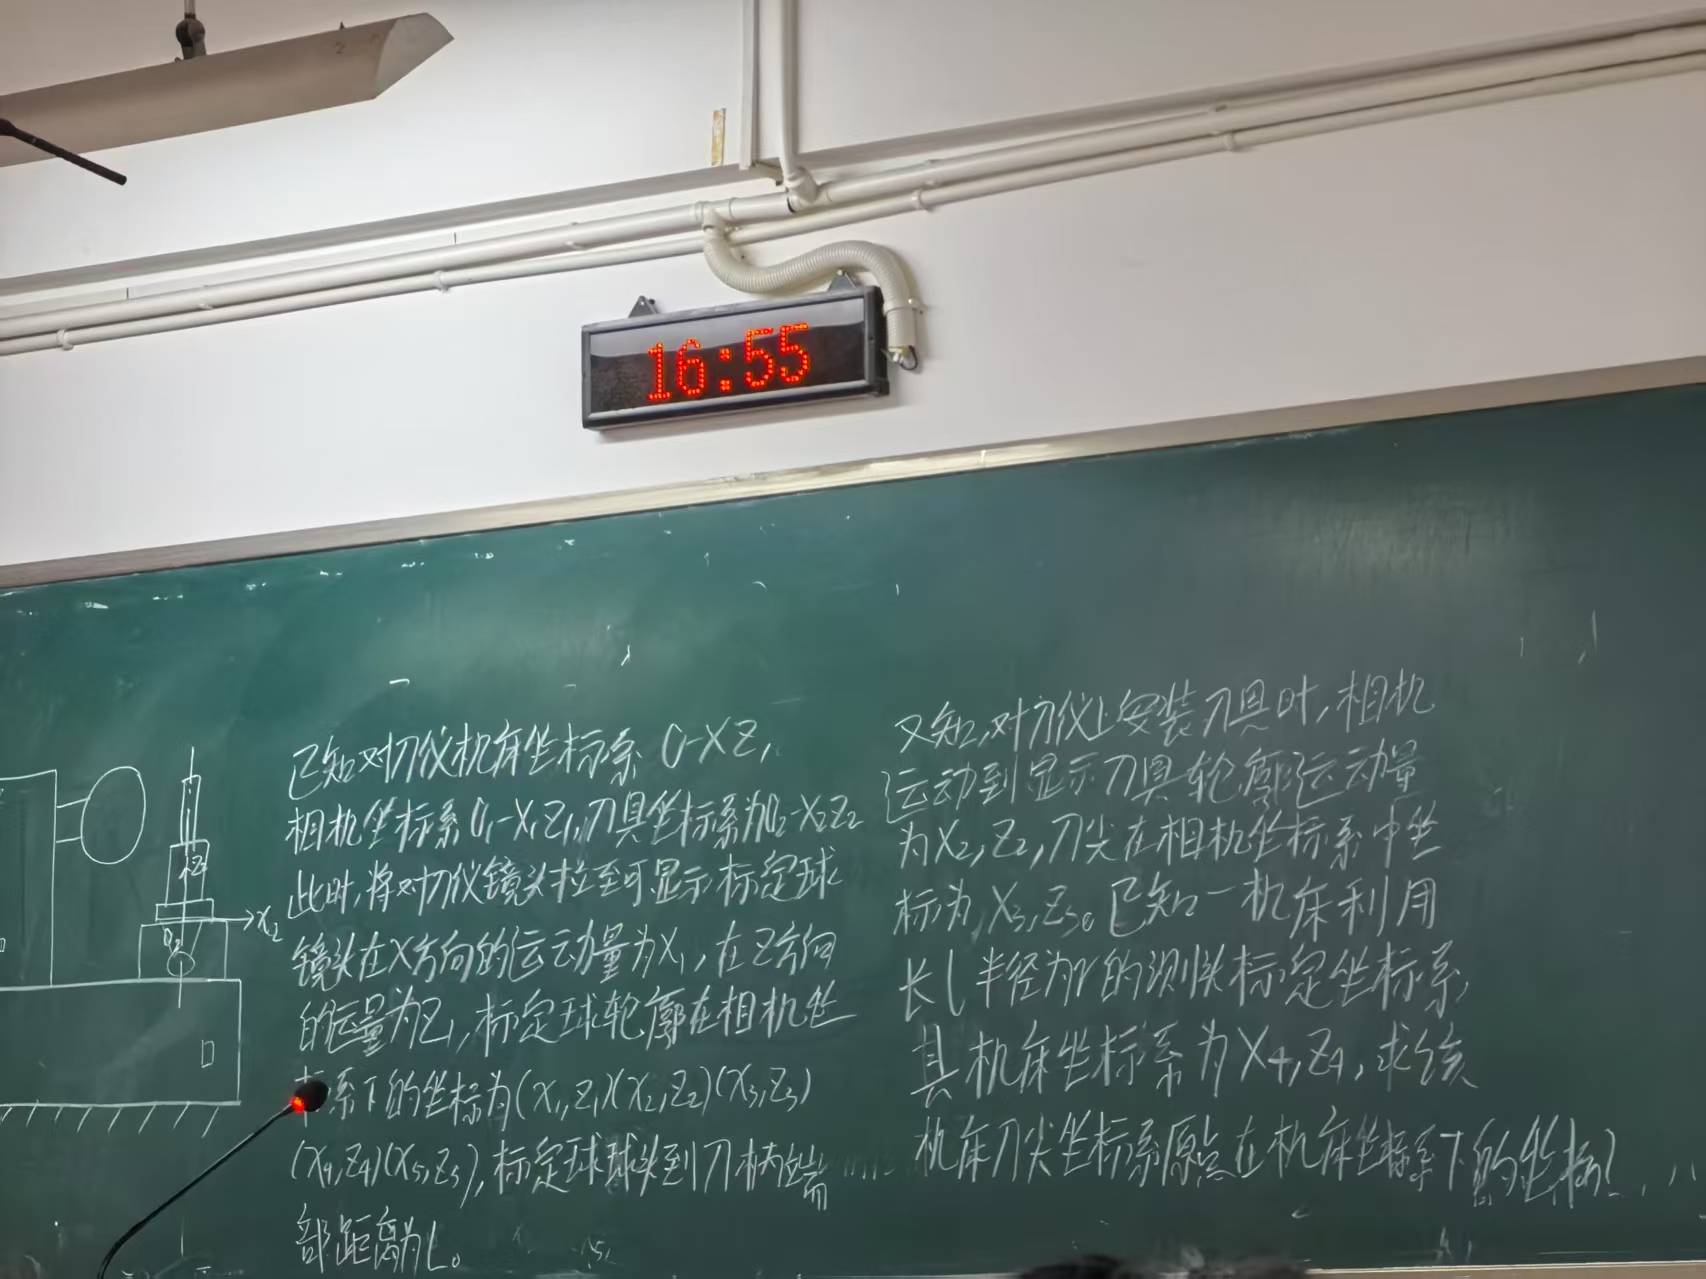 16:55
已知对刀仪机床坐标系 O-XZ,
相机坐标系O₁-X₁Z₁,刀具坐标系为O₂-X₂Z₂
此时,将对刀仪镜头拉至可显示标定球
镜头在X方向的运动量为X₁,在Z方向
的运量为Z₁,标定球轮廓在相机坐
标系下的坐标为(x₁,z₁)(x₂,z₂)(x₃,z₃)
(x₄,z₄)(x₅,z₅),标定球球头到刀柄端
部距离为L。
x₂
O₂
Z
又知,对刀仪上安装刀具时,相机
运动到显示刀具轮廓运动量
为X₂,Z₂,刀尖在相机坐标系中坐
标为,X₃,Z₃。已知一机床利用
长l半径为r的测头标定坐标系,
其机床坐标系为X₄,Z₄,求该
机床刀尖坐标系原点在机床坐标系下的坐标?